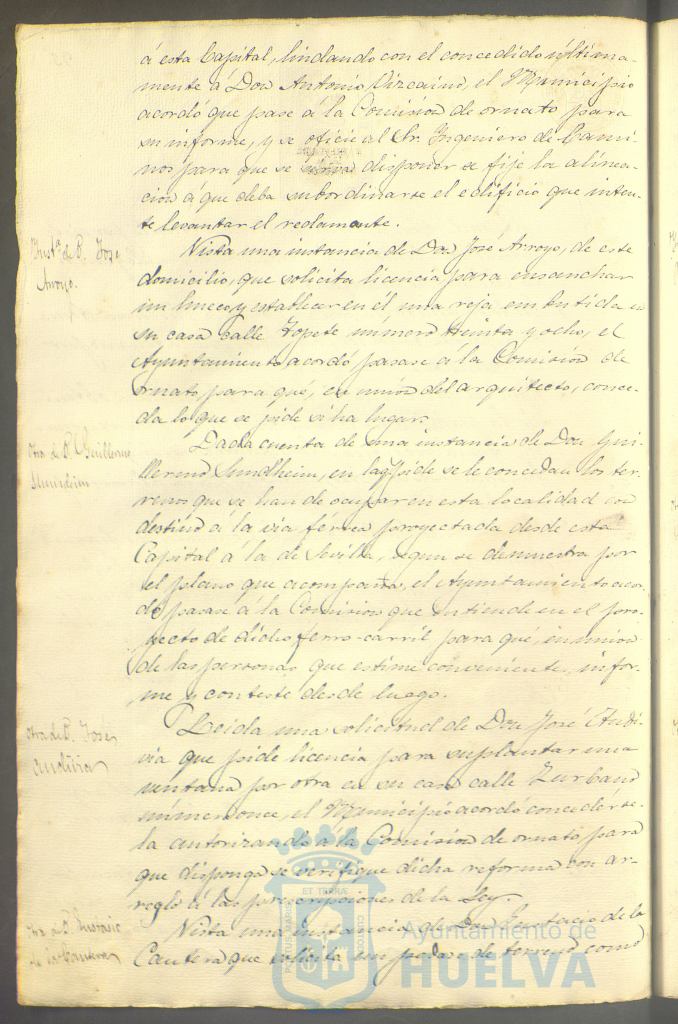 á esta Capital, lindando con el concedido última-
mente á Don Antonio Vizcaino, el Municipio
acordó que pase á la Comision de ornato para
su informe, y se oficie al Sr. Ingeniero de Cami-
nos para que se sirva disponer se fije la alinea-
cion á que deba subordinarse el edificio que inten-
te levantar el reclamante.
Inst.ª de D. José
Arroyo.
Vista una instancia de Don José Arroyo, de este
domicilio, que solicita licencia para ensanchar
un hueco y establecer en él una reja embutida en
su casa calle Topete número treinta y ocho, el
Ayuntamiento acordó pasase á la Comisión de
ornato para qué, en union del arquitecto, conce-
da lo que se pide si ha lugar.
Otra de D. Guillermo
Sundheim
Dada cuenta de una instancia de Don Gui-
llermo Sundheim, en la q. pide se le concedan los ter-
renos que se han de ocupar en esta localidad con
destino á la via férrea proyectada desde esta
Capital á la de Sevilla, segun se demuestra por
el plano que acompaña, el Ayuntamiento acor-
dó pasase á la Comision que entiende en el pro-
yecto de dicho ferro-carril para qué, en union
de las personas que estime conveniente, infor-
me y conteste desde luego.
Otra de D. José
Andivia
Leida una solicitud de Don José Andi-
via que pide licencia para suplantar una
ventana por otra en su casa calle Zurbano
número once, el Municipio acordó concedérse-
la autorizando á la Comision de ornato para
que disponga se verifique dicha reforma con ar-
reglo á las prescripciones de la Ley.
de la Cantera
Vista una instancia de Don Eustasio de la
Cantera que solicita un pedazo de terreno como
PORTUS MARIS
ET TERRÆ
CUSTODIA
Ayuntamiento de
HUELVA